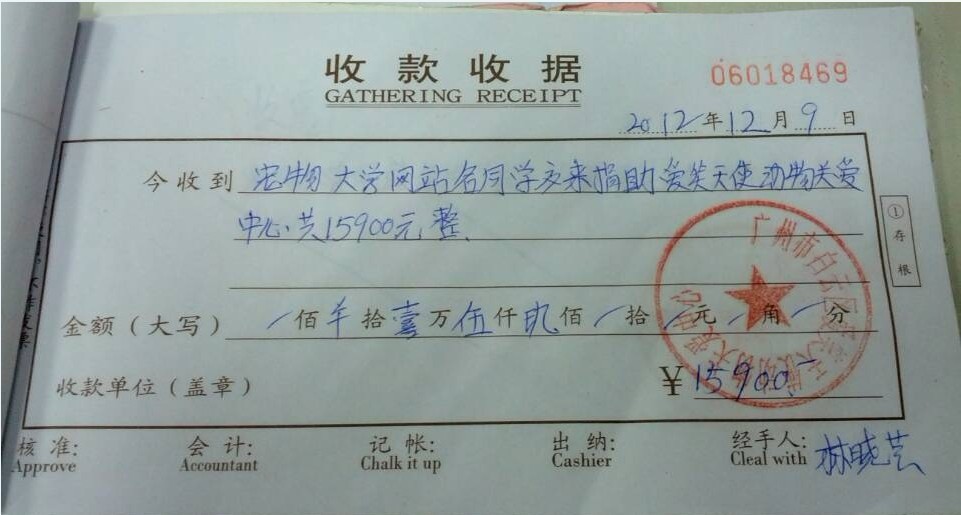 收款收据
GATHERING RECEIPT
06018469
2012年12月9日
今收到 宠物大学网站各同学交来捐助爱笑天使动物关爱
中心.共15900元整
①存根
金额（大写） / 佰 半 拾 壹 万 伍 仟 玖 佰 / 拾 / 元 / 角 / 分
收款单位（盖章） ￥15900
广州市白云区
核准: 会计: 记帐: 出纳: 经手人: 林晓芸
Approve Accountant Chalk it up Cashier Cleal with